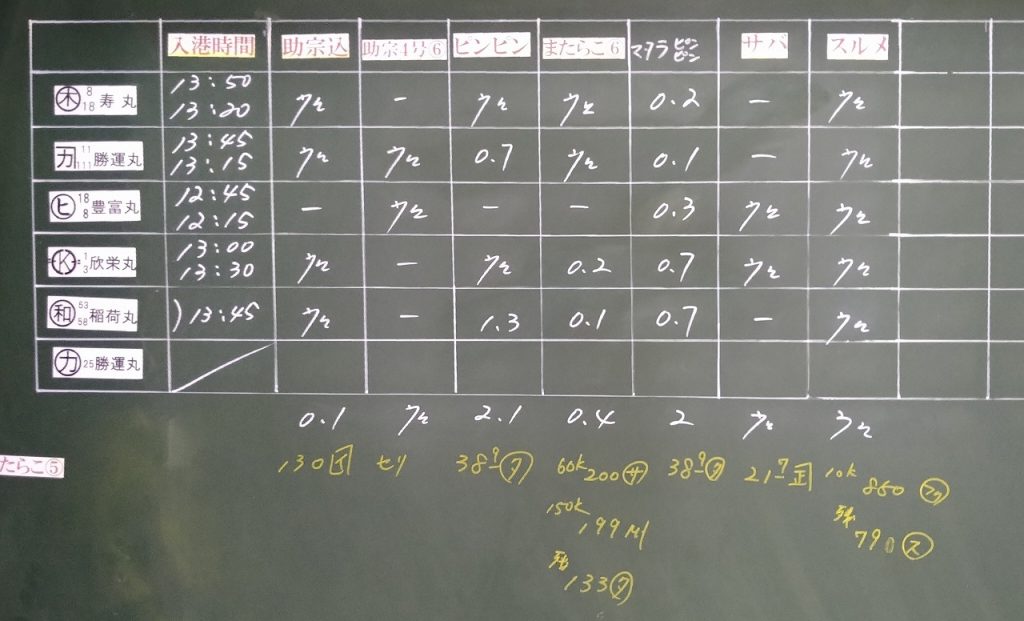 入港時間 助宗込 助宗4号⑥ ピンピン またらこ⑥ マダラピンピン サバ スルメ
木 8 18 寿丸 13:50 13:20 ウと — ウと ウと 0.2 — ウと
カ 11 111 勝運丸 13:45 13:15 ウと ウと 0.7 ウと 0.1 — ウと
ヒ 18 8 豊富丸 12:45 12:15 — ウと — — 0.3 ウと ウと
K 1 3 欣栄丸 13:00 13:30 ウと — ウと 0.2 0.7 ウと ウと
和 53 58 稲荷丸 ) 13:45 ウと — 1.3 0.1 0.7 — ウと
カ 25 勝運丸
0.1 ウと 2.1 0.4 2 ウと ウと
たらこ⑤ 130 セリ 38 9 ㋗ 60k 200 ㋚ 38 9 ㋗ 21 7 正 10k 860
150k 199 残 790 ㋜
残 133